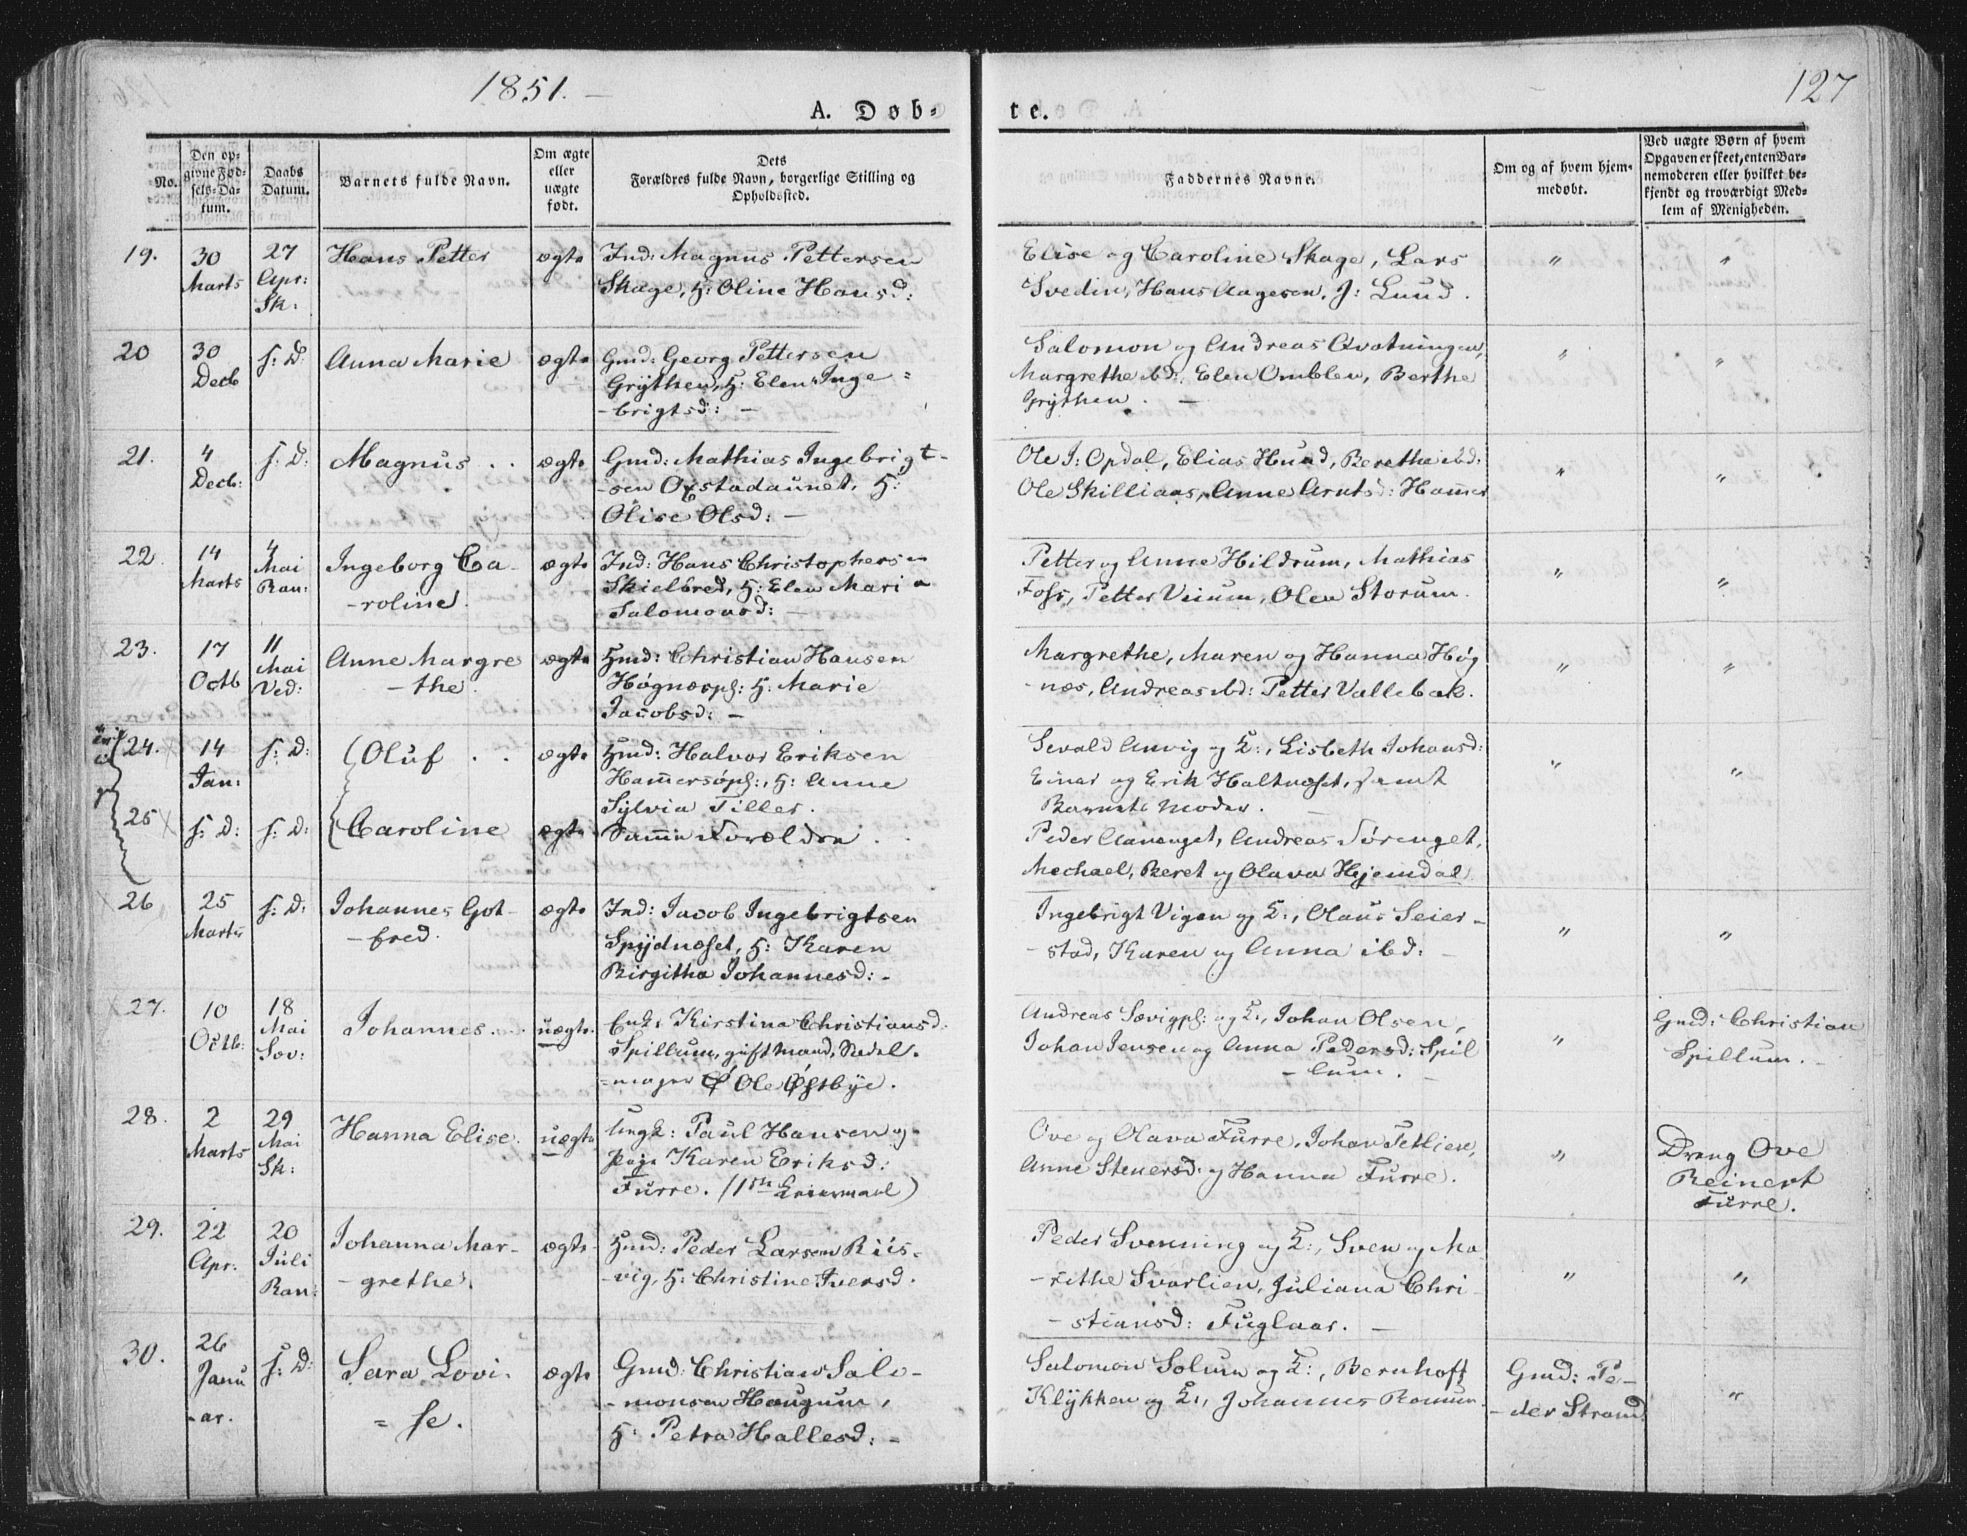 1851.
127
A. Døb-
te.
No.
Den op-
givne Fød-
sels-Da-
tum.
Daabs
Datum.
Barnets fulde Navn.
Om ægte
eller
uægte
født.
Dets
Forældres fulde Navn, borgerlige Stilling og
Opholdssted.
Faddernes Navne.
Om og af hvem hjem-
medøbt.
Ved uægte Børn af hvem
Opgaven er skeet, enten Bar-
nemoderen eller hvilket be-
kjendt og troværdigt Med-
lem af Menigheden.
19.
30
Marts
27
Apr:
Sk:
Hans Petter
ægte
Ind: Magnus Pettersen
Skage, H: Oline Hansd:
Elise og Caroline Skage, Lars
Svedin, Hans Aagesen, J: Lund.
"
"
20
30
Decb
s: D:
Anna Marie
ægte
Gmd: Georg Pettersen
Grÿthen, H: Elen Inge=
-brigtsd: -
Salomon og Andreas Qvatningen,
Margrethe ibd:, Elen Omblen, Berthe
Grÿthen. -
"
"
21.
4
Decb:
s: D:
Magnus . .
ægte
Gmd: Mathias Ingebrigt-
-sen Oxstadaunet, H:
Olise Olsd: -
Ole J: Opdal, Elias Hund, Berethe ibd:
Ole Skilliaas, Anne Arntsd: Hammer
"
"
22.
14
Marts
4
Mai
Ran:
Ingeborg Ca-
-roline.
ægte
Ind: Hans Christophersen
Skielbred, H: Elen Maria
Salomonsd: -
Petter og Anne Hildrum, Mathias
Foss, Petter Veium, Olea Storum.
"
"
23.
17
Octb
11
Mai
Ved:
Anne Margre
-the.
ægte
Hmd: Christian Hansen
Høgnæspl: H: Marie
Jacobsd: -
Margrethe, Maren og Hanna Høg
-næs, Andreas ibd: Petter Vallebak.
"
"
24.
14
Jan:
s: D:
Oluf . .
ægte
Hmd: Halvor Eriksen
Hammersøpl:, H: Anne
Sylvia Tiller.
Sevald Anvig og K:, Lisbeth Johansd:
Einar og Erik Haltnæset, samt
Barnets Moder.
"
"
25
s: D:
s: D:
Caroline
ægte
Samme Forældre . .
Peder Aavenget, Andreas Sørenget,
Mechael, Beret og Olava Hejemdal.
26
25
Marts
s: D:
Johannes Got-
-fred.
ægte
Ind: Jacob Ingebrigtsen
Spÿdnæset, H: Karen
Birgitha Johannesd: -
Ingebrigt Vigen og K:, Olaus Seier-
-stad, Karen og Anna ibd:
"
"
27.
10
Octb:
18
Mai
Sov:
Johannes. . .
uægte
Enke Kirstina Christiansd.
Spillum, gift Mand, Nedel.
-mager Ole Østbÿe.
Andreas Sævigpl: og K:, Johan Olsen,
Johan Jensen og Anna Pedersd: Spil
-lum. -
"
Gmd: Christian
Spillum. -
28.
2
Marts
29
Mai
Sk:
Hanna Elise.
uægte
Ungk: Paul Hansen og
Pige Karen Eriksd:
Furre. (1ste Leiermaal)
Ove og Olava Furre, Johan Tetlien,
Anne Stenersd: og Hanna Furre.
"
Dreng Ove
Reinert
Furre.
29.
22
Apr.
20
Juli
Ran:
Johanna Mar-
-grethe.
ægte
Hmd: Peder Larsen Riis-
-vig, H: Christine Iversd.
Peder Svenning og K:, Sven og Ma-
-rithe Svarlien, Juliana Chri-
-stiansd: Fuglaar. -
"
"
30.
26
Janu
-ar.
s: D:
Sara Lovi-
=se.
ægte
Gmd: Christian Salo-
-monsen Haugum,
H: Petra Hallesd: -
Salomon Solum og K:, Bernhoff
Klÿkken og K:, Johannes Romun.
Gmd: Pe-
-der Strand
"